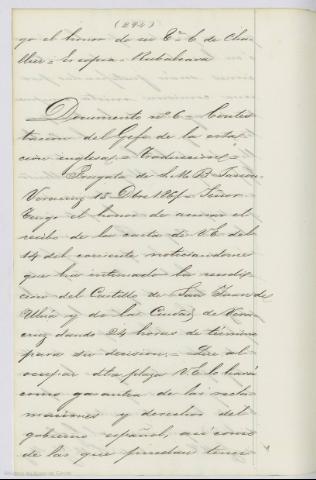 (294)
go el honor de ser Eª. E. de Cha-
llier = Es copia = Rubalcava
Documento nº 6 = Contes-
tacion del Gefe de la esta-
cion inglesa. = Traduccion =
Fragata de S. M. B.
Veracruz 15 Dbre 1861 = Señor
Tengo el honor de acusar el
recibo de la carta de V.E. del
14 del corriente noticiandome
que ha intimado la rendi-
cion del Castillo de San Juan de
Ulua y de la Ciudad de Vera-
cruz dando 24 horas de término
para su decision. =
ocupar dha plaza V.E. lo hará
como garantia de las recla-
maciones y derechos del
gobierno español, asi como
de las que puedan tener